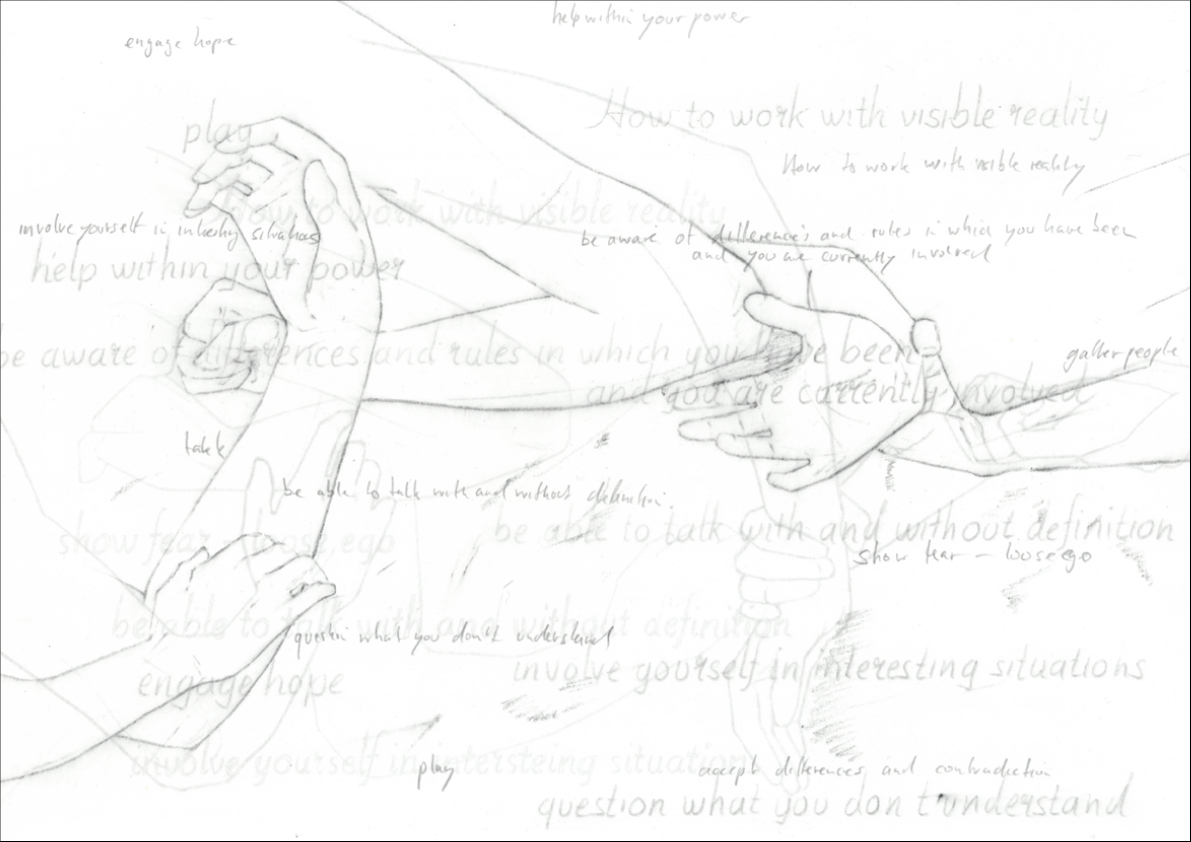 help within your power
engage hope
How to work with visible reality
play
How to work with visible reality
How to work with visible reality
involve yourself in situations
be aware of differences and rules in which you have been
and you are currently involved
help within your power
be aware of differences and rules in which you have been
gather people
and you are currently involved
talk
be able to talk with and without definition
be able to talk with and without definition
show fear - loose ego
show fear – loose ego
be able to talk with and without definition
question what you don't understand
involve yourself in interesting situations
engage hope
involve yourself in intersteing situations
play
accept differences and contradiction
question what you don't understand